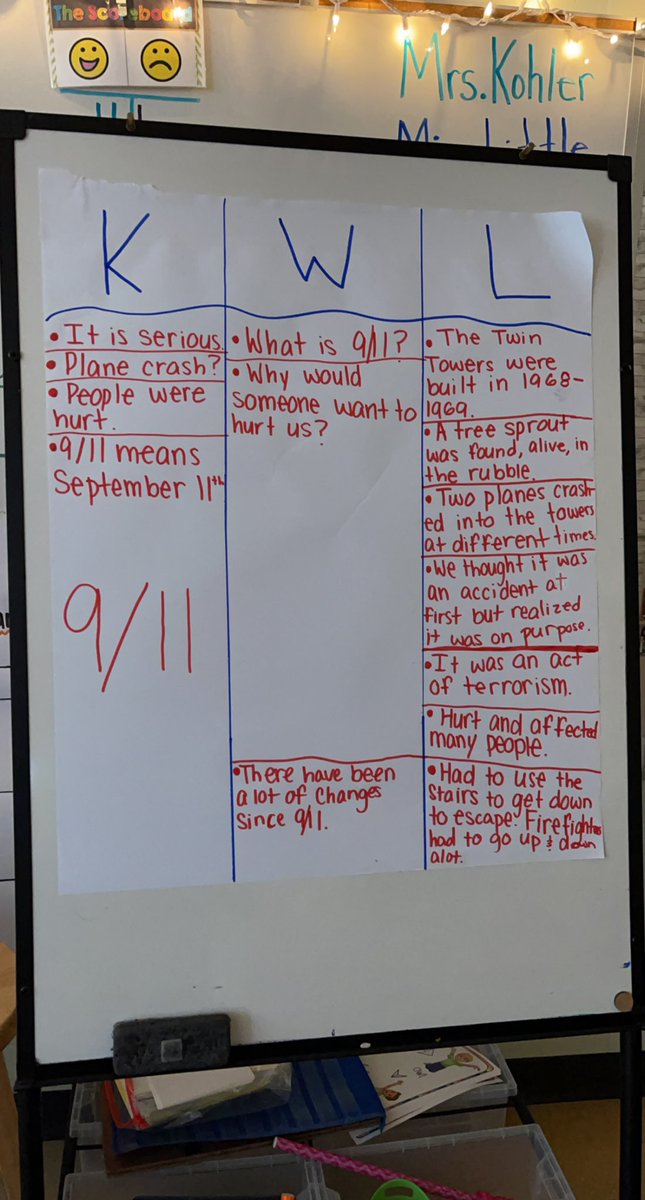 The Scoreboard
Mrs. Kohler
K
W
L
• It is serious.
• Plane crash?
• People were
hurt.
• 9/11 means
September 11th
9/11
• What is 9/11?
• Why would
someone want to
hurt us?
• There have been
a lot of changes
since 9/11.
• The Twin
Towers were
built in 1968-
1969.
• A tree sprout
was found, alive, in
the rubble.
• Two planes crash
ed into the towers
at different times.
• We thought it was
an accident at
first but realized
it was on purpose.
• It was an act
of terrorism.
• Hurt and affected
many people.
• Had to use the
stairs to get down
to escape. Firefighters
had to go up & down
alot.